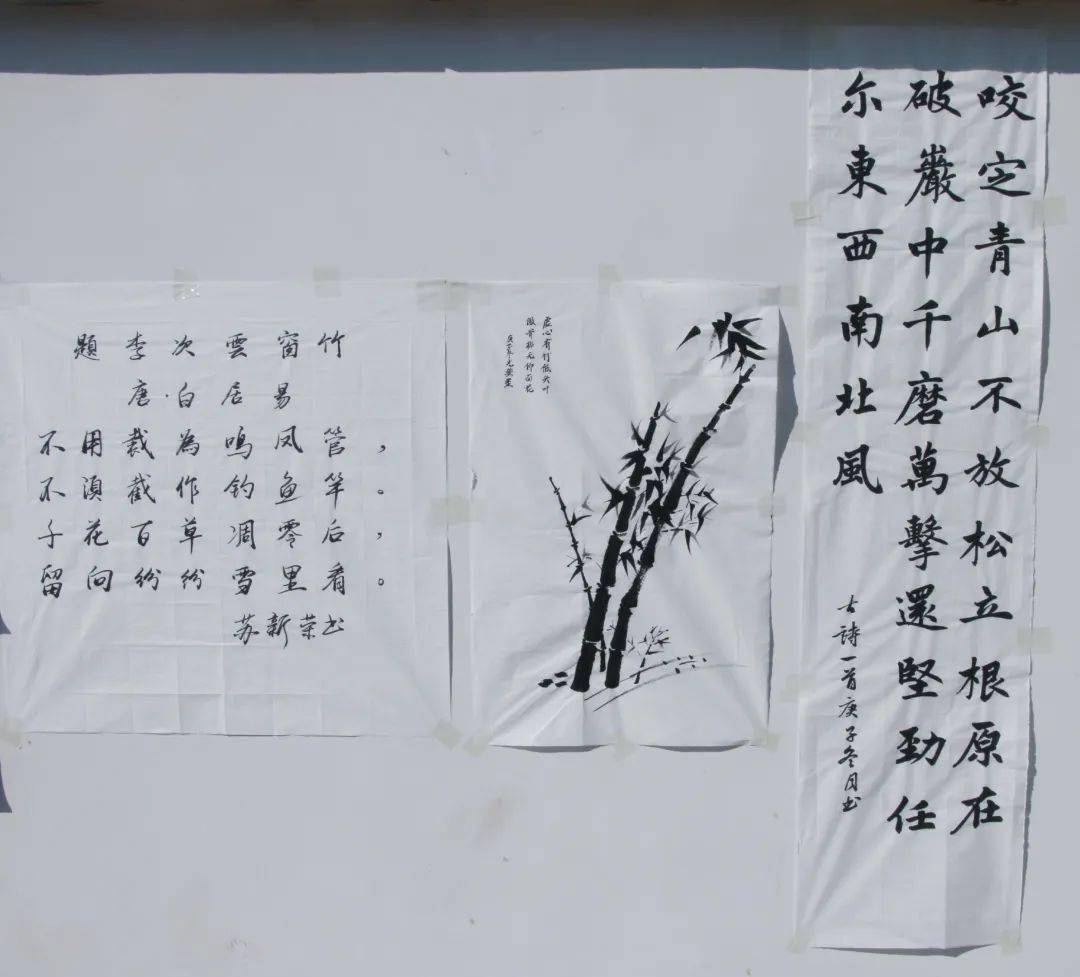 題李次雲窗竹
唐.白居易
不用裁為鳴凤管，
不湏截作钓鱼竿。
千花百草凋零后，
留向纷纷雪里看。
苏新荣书
虚心有竹低头叶
傲骨梅无仰面花
咬定青山不放松立根原在
破巖中千磨萬擊還堅勁任
尔東西南北風
古詩一首庚子冬月书